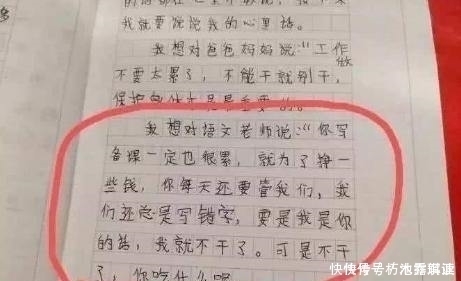 我就要说说我的心里话。
我想对爸爸妈妈说:“工作做
不要太累了,不能干就别干,
保护身体才是最重要的。
我想对语文老师说:“你写
备课一定也很累,就为了挣一
些钱,你每天还要管我们,我
们还总是写错字,要是我是你
的话,我就不干了。可是不干
了,你吃什么呢
快传号